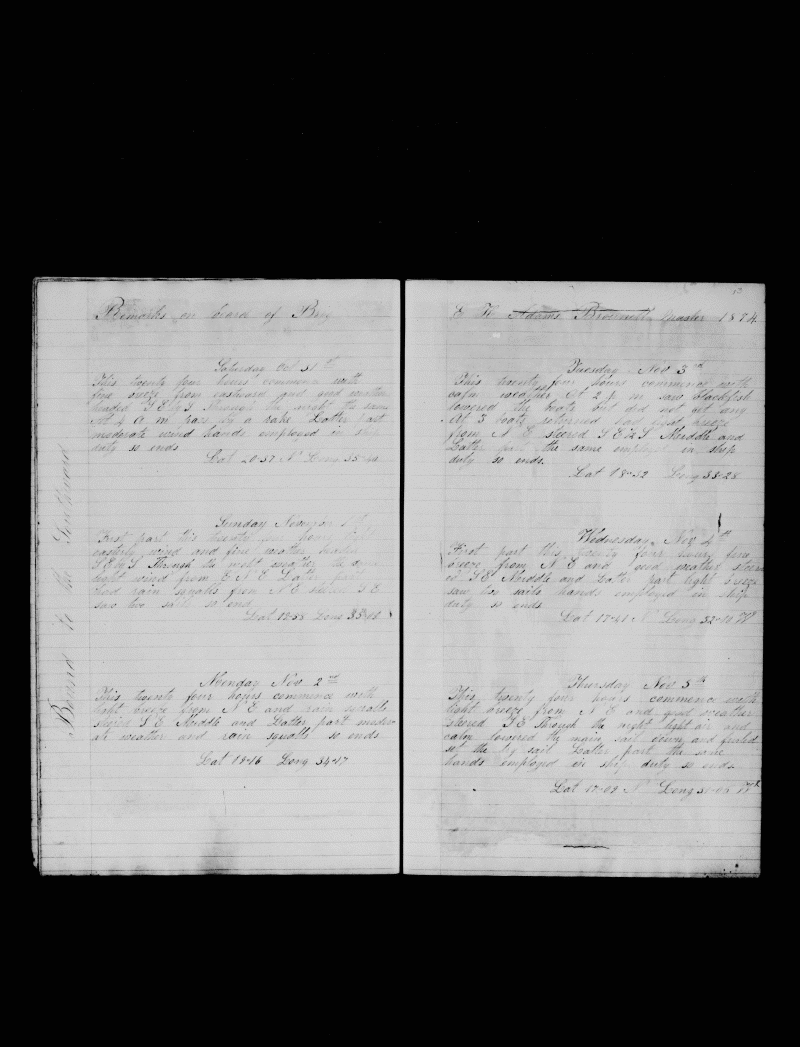 Remarks on board of Brig
Saturday Oct 31st
This twenty four hours commence with
fine breeze from eastward and good weather
headed S E by S Through the night the same
At 4 A m pass by a sail Latter part
moderate wind hands employed in ship
duty so ends
Lat 20-37 N Long 35-40
Sunday November 1st
First part this twenty four hours light
easterly wind and fine weather
S E by S Through the night weather the same
light wind from E N E Latter part
had rain squalls from N E steered S E
saw two sails so end
Lat 18-58 Long 35-08
Monday Nov 2nd
This twenty four hours commence with
light breeze from N E and rain squalls
steering S E Middle and Latter part moder
ate weather and rain squalls so ends
Lat 18-16 Long 34-17
Bound to the Southward
E H Adams Brownell Master 1874
Tuesday Nov 3rd
This twenty four hours commence with
calm weather At 2 p m saw blackfish
lowered the boats but did not get any
At 3 boats returned had light breeze
from N E steered S E ½ S Middle and
Latter part the same employed in ship
duty so ends.
Lat 18-32 Long 33-28
Wednesday Nov 4th
First part this twenty four hours fine
breeze from N E and good weather steered
S E Middle and Latter part light breeze
saw two sails hands employed in ship
duty so ends
Lat 17-41 N Long 32-16 W
Thursday Nov 5th
This twenty four hours commence with
light breeze from N E and good weather
steered S E Through the night light air and
calm lowered the main sail down and furled
set the try sail Latter part the same
hands employed in ship duty so ends.
Lat 17-09 N Long 31-06 W